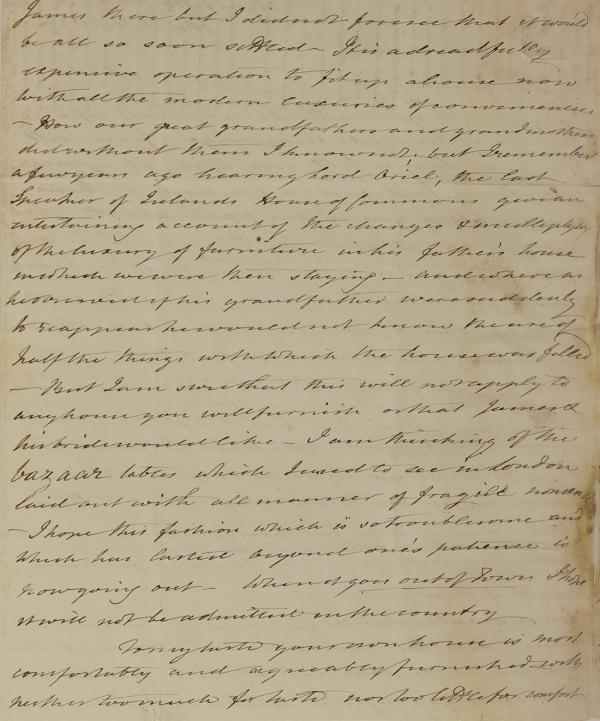 James there but I did not foresee that it would
be all so soon settled – It is a dreadfully
expensive operation to fit up a house now
with all the modern luxuries of conveniences
– How our great grandfathers and grandmothers
did without them I know not; but I remember
a few years ago hearing Lord Oriel, the last
Speaker of Irelands House of Commons give an
entertaining account of the changes & multiplying
of the luxury of furniture in his father's house
in which we were then staying – and where as
he observed if his grandfather were suddenly
to reappear he would not know the use of
half the things with which the house was filled
– But I am sure that this will not apply to
any house you will furnish or that James &
his bride would like – I am thinking of the
bazaar tables which I used to see in London
laid out with all manner of fragile nonsense
– I hope this fashion which is so troublesome and
which has lasted beyond one's patience is
now going out – When it goes out of Town I hope
it will not be admitted in the country
To my taste your own house is most
comfortably and agreeably furnished with
neither too much for taste nor too little for comfort